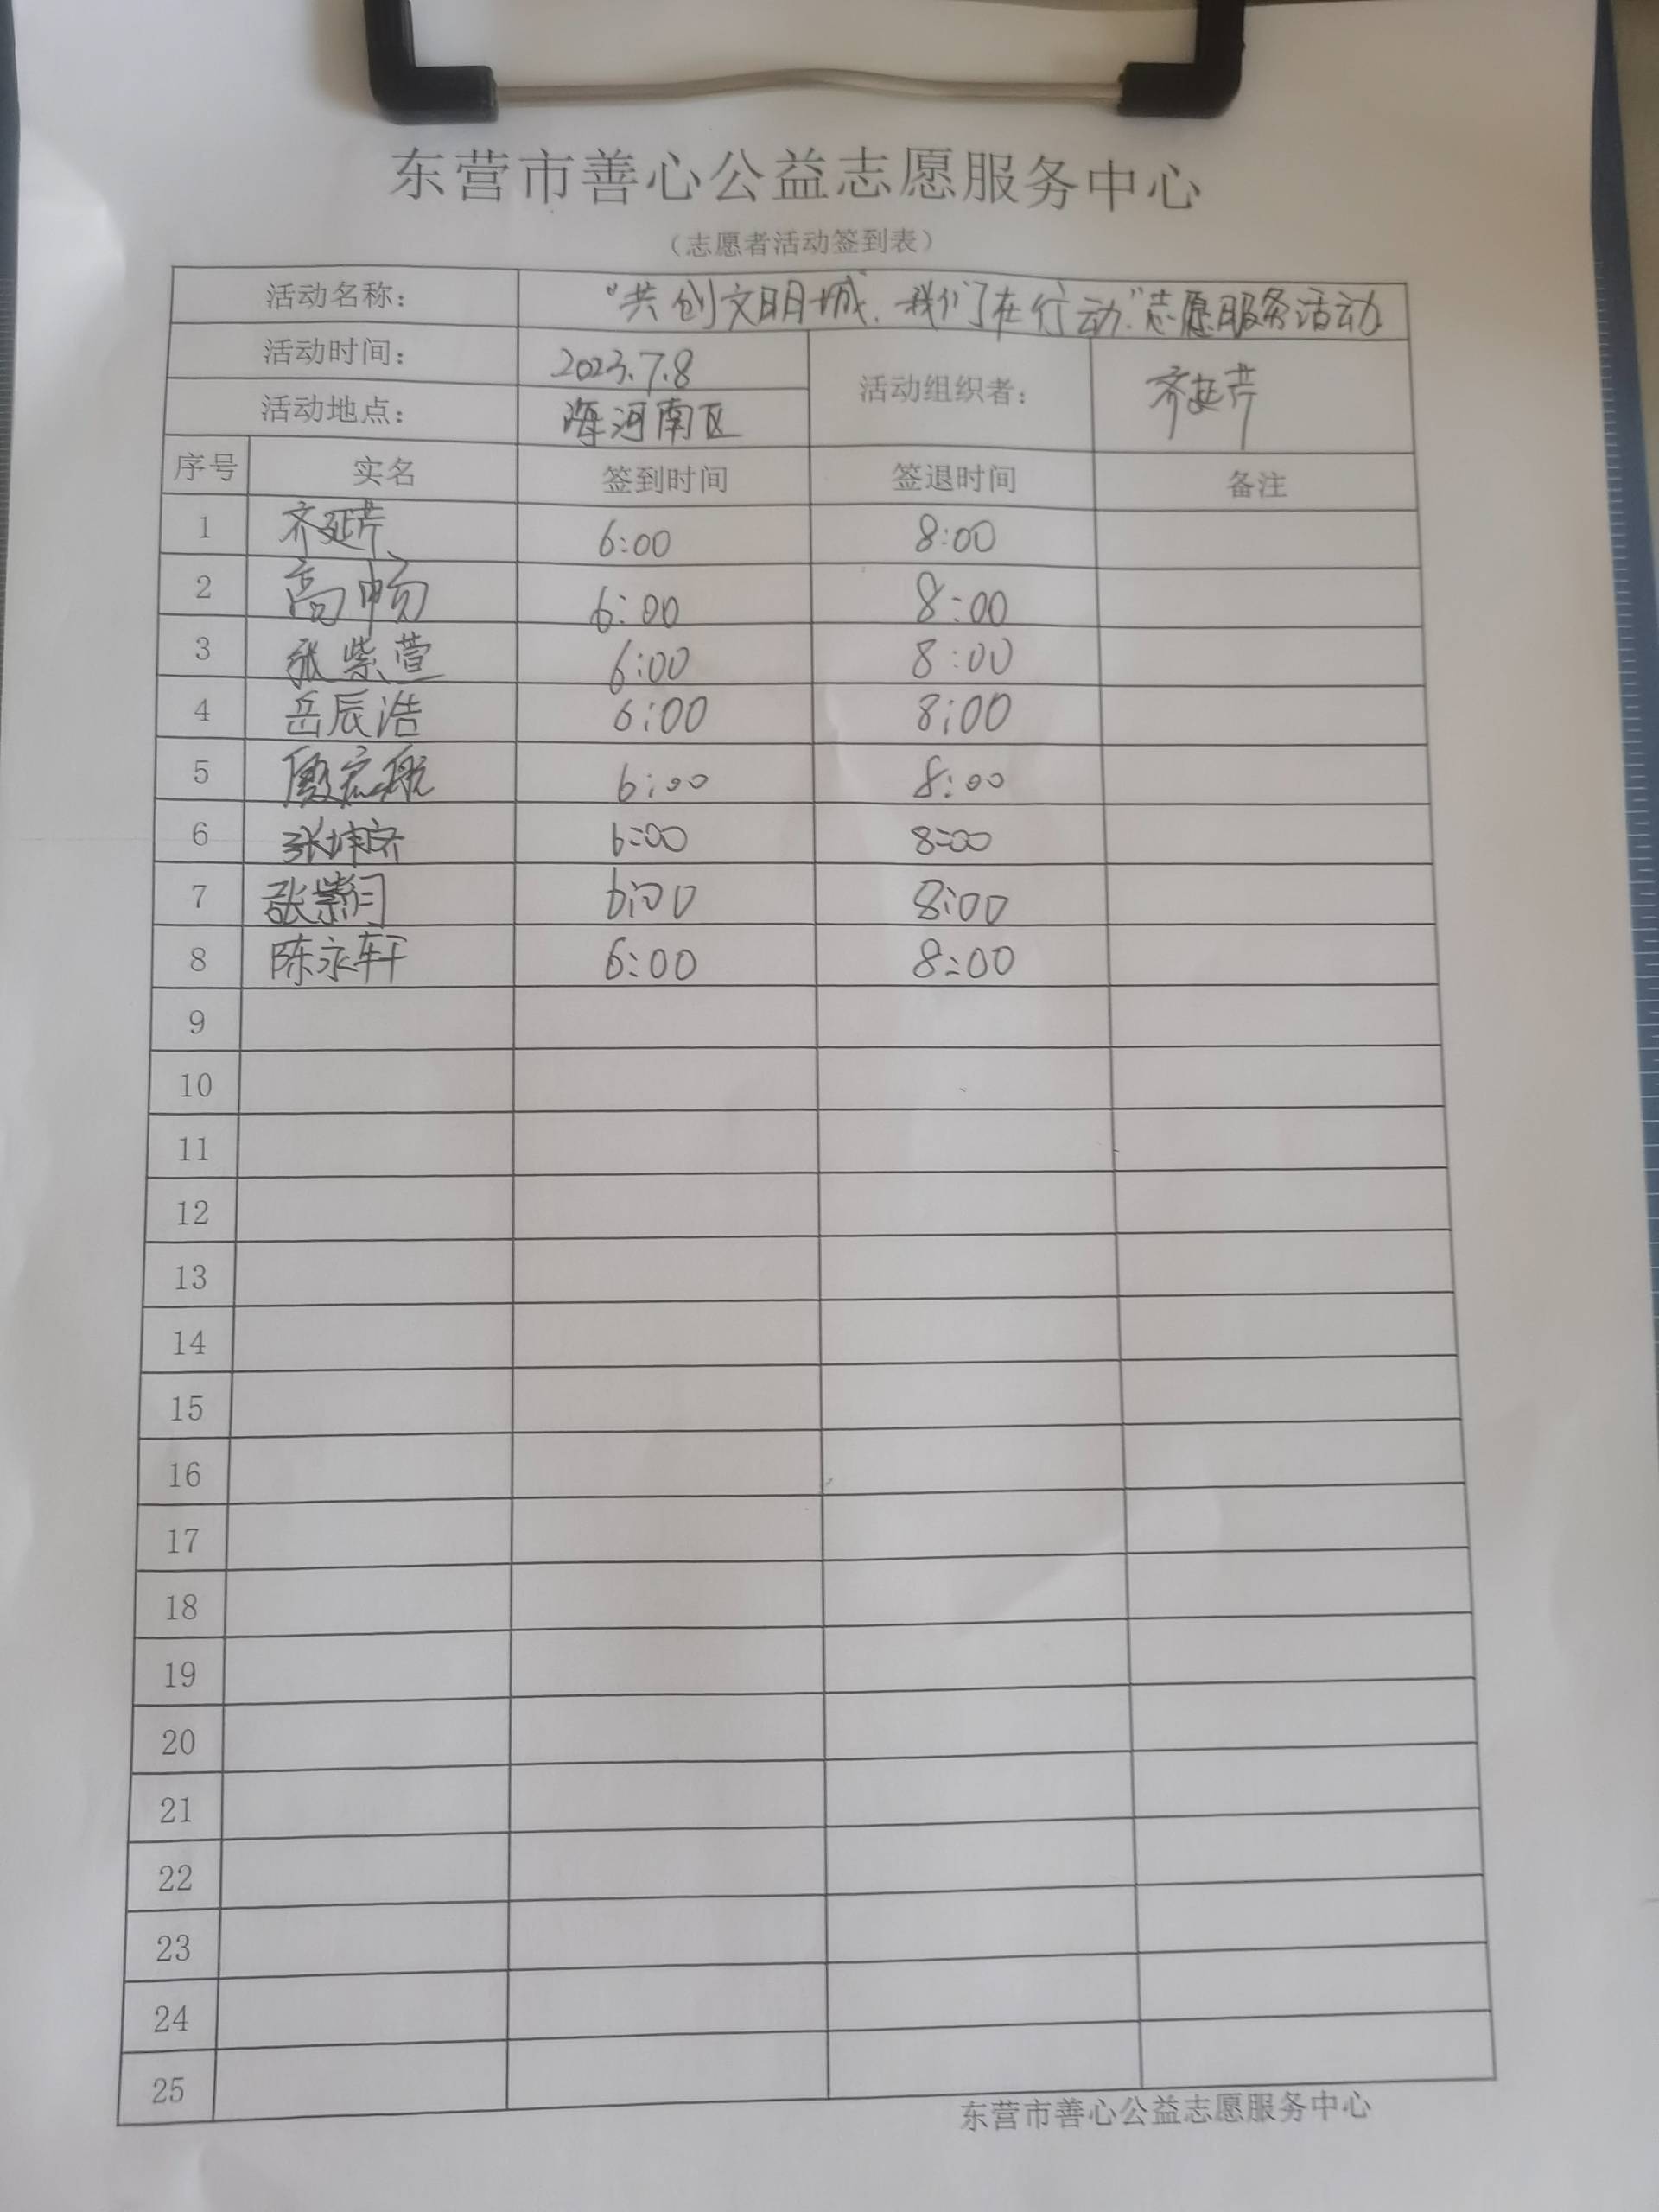 东营市善心公益志愿服务中心
（志愿者活动签到表）
活动名称： "共创文明城、我们在行动"志愿服务活动
活动时间： 2023.7.8 活动组织者： 齐延芹
活动地点： 海河南区
序号 实名 签到时间 签退时间 备注
1 齐延芹 6:00 8:00
2 高畅 6:00 8:00
3 张紫萱 6:00 8:00
4 岳辰浩 6:00 8:00
5 6:00 8:00
6 6:00 8:00
7 6:00 8:00
8 陈永轩 6:00 8:00
9
10
11
12
13
14
15
16
17
18
19
20
21
22
23
24
25
东营市善心公益志愿服务中心